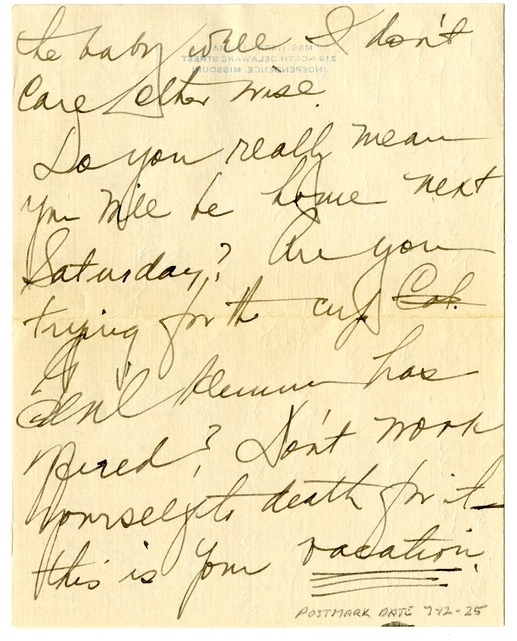 the baby, well I don't
MRS. HARRY
219 NORTH DELAWARE STREET
INDEPENDENCE, MISSOURI
care other wise.
Do you really mean
you will be home next
Saturday? Are you
trying for the cup Col.
Genl Klemm has
offered? Don't work
yourself to death for it—
this is your vacation.
POSTMARK DATE 7-12-25